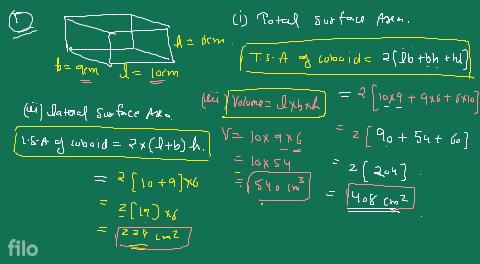 ①
(i) Total Surface Area.
h = 6cm
b = 9cm l = 10cm
T.S.A of cuboid = 2[lb+bh+hl]
= 2[10×9 + 9×6 + 6×10]
= 2[90 + 54 + 60]
= 2[204]
= 408 cm²
(ii) lateral Surface Area
L.S.A of cuboid = 2×(l+b)h.
= 2[10+9]×6
= 2[19]×6
= 228 cm²
(iii) Volume = l×b×h
V = 10×9×6
= 10×54
= 540 cm³
filo